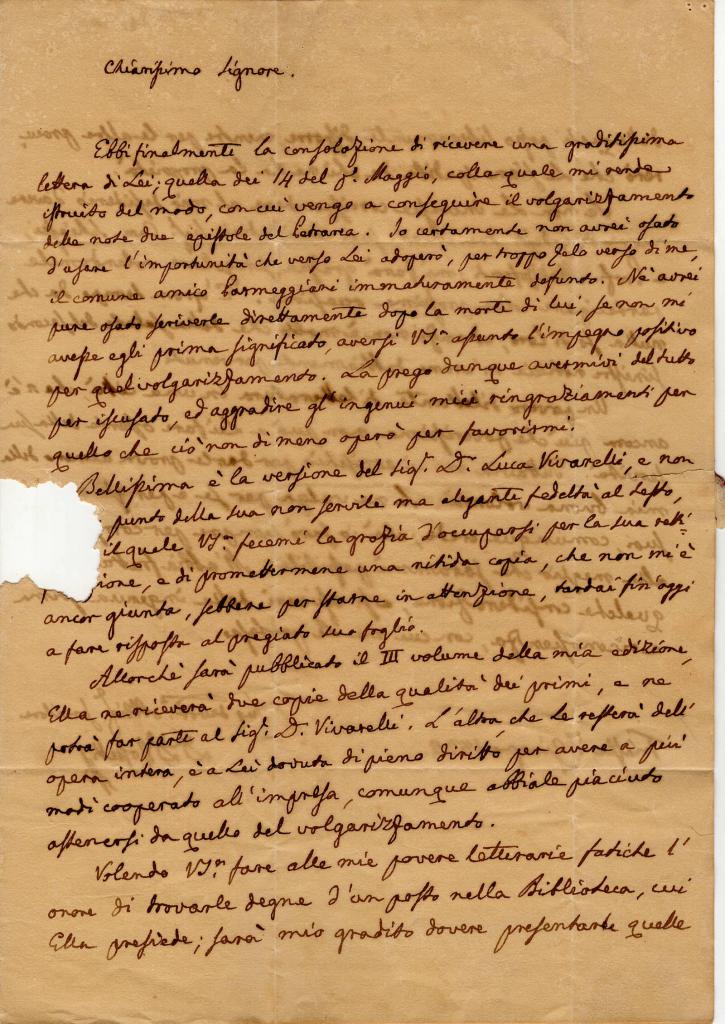 Chiarissimo Signore.
Ebbi finalmente la consolazione di ricevere una graditissima
lettera di Lei; quella dei 14 del p.º Maggio, colla quale mi rende
istruito del modo, con cui vengo a conseguire il volgarizzamento
delle note due epistole del Petrarca. Io certamente non avrei osato
d'usare l'importunità che verso Lei adoperò, per troppo zelo verso di me,
il comune amico Parmeggiani immaturamente defunto. Nè avrei
pure osato scriverle direttamente dopo la morte di lui, se non mi
avesse egli prima significato, aversi VS.ª assunto l'impegno positivo
per quel volgarizzamento. La prego dunque avermivi del tutto
per iscusato, ed aggradire gl'ingenui miei ringraziamenti per
quello che ciò non di meno operò per favorirmi.
Bellissima è la versione del Sig.r D.r Luca Vivarelli, e non
punto della sua non servile ma elegante fedeltà al testo,
il quale VS.ª fecemi la grazia d'occuparsi per la sua retti=
ione, e di promettermene una nitida copia, che non mi è
ancor giunta, sebbene per starne in attenzione, tardai fin'oggi
a fare risposta al pregiato suo foglio.
Allorchè sarà pubblicato il III volume della mia edizione,
Ella ne riceverà due copie della qualità dei primi, e ne
potrà far parte al Sig.r D. Vivarelli. L'altra, che Le resterà dell'
opera intera, è a Lei dovuta di pieno diritto per avere a più
modi cooperato all'impresa, comunque abbiale piaciuto
astenersi da quello del volgarizzamento.
Volendo VS.ª fare alle mie povere letterarie fatiche l'
onore di trovarle degne d'un posto nella Biblioteca, cui
Ella presiede; sarà mio gradito dovere presentarle quelle